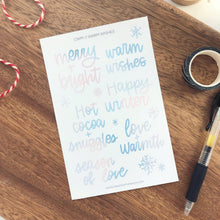 merry warm
bright wishes
Happy
Hot winter
cocoa
snuggles love
season warmth
of love